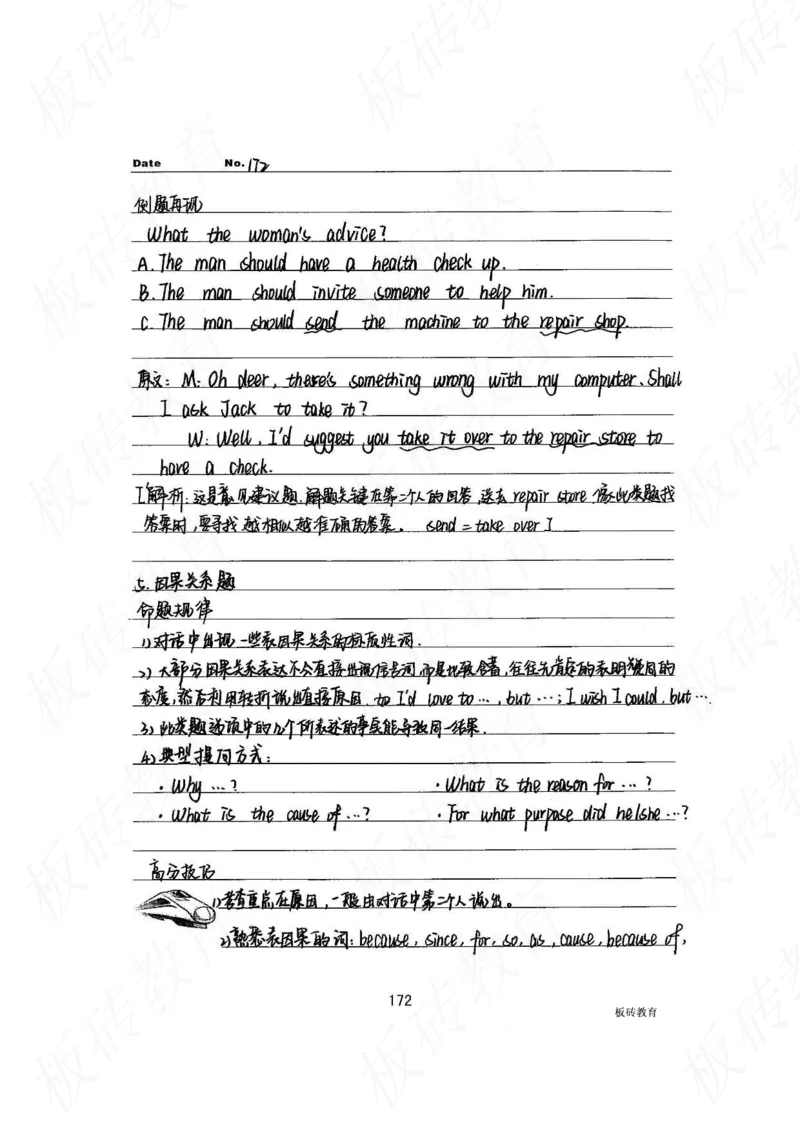 Date No. 172
例题再现
What the woman's advice?
A. The man should have a health check up.
B. The man should invite someone to help him.
C. The man should send the machine to the repair shop.
原文: M: Oh deer, there's something wrong with my computer. Shall
I ask Jack to take it?
W: Well, I'd suggest you take it over to the repair store to
have a check.
[解析: 这是意见建议题, 解题关键在第二个人的回答 送去 repair store 做此类题找
答案时, 要寻找越相似越准确的答案. send = take over]
5. 因果关系题
命题规律
1) 对话中出现一些表因果关系的标志性词.
2) 大部分因果关系表达不会直接出现信号词, 而是比较含蓄, 往往先肯定的表明
态度, 然后利用转折说出直接原因. I'd love to ..., but ...; I wish I could, but ...
3) 此类题选项中的几个所表述的事实能导致同一结果.
4) 典型提问方式:
· Why ...? · What is the reason for ...?
· What is the cause of ...? · For what purpose did he/she ...?
高分技巧
1) 考查重点在原因, 一般由对话中第二个人说出。
2) 熟悉表因果的词: because, since, for, so, as, cause, because of,
172
板砖教育